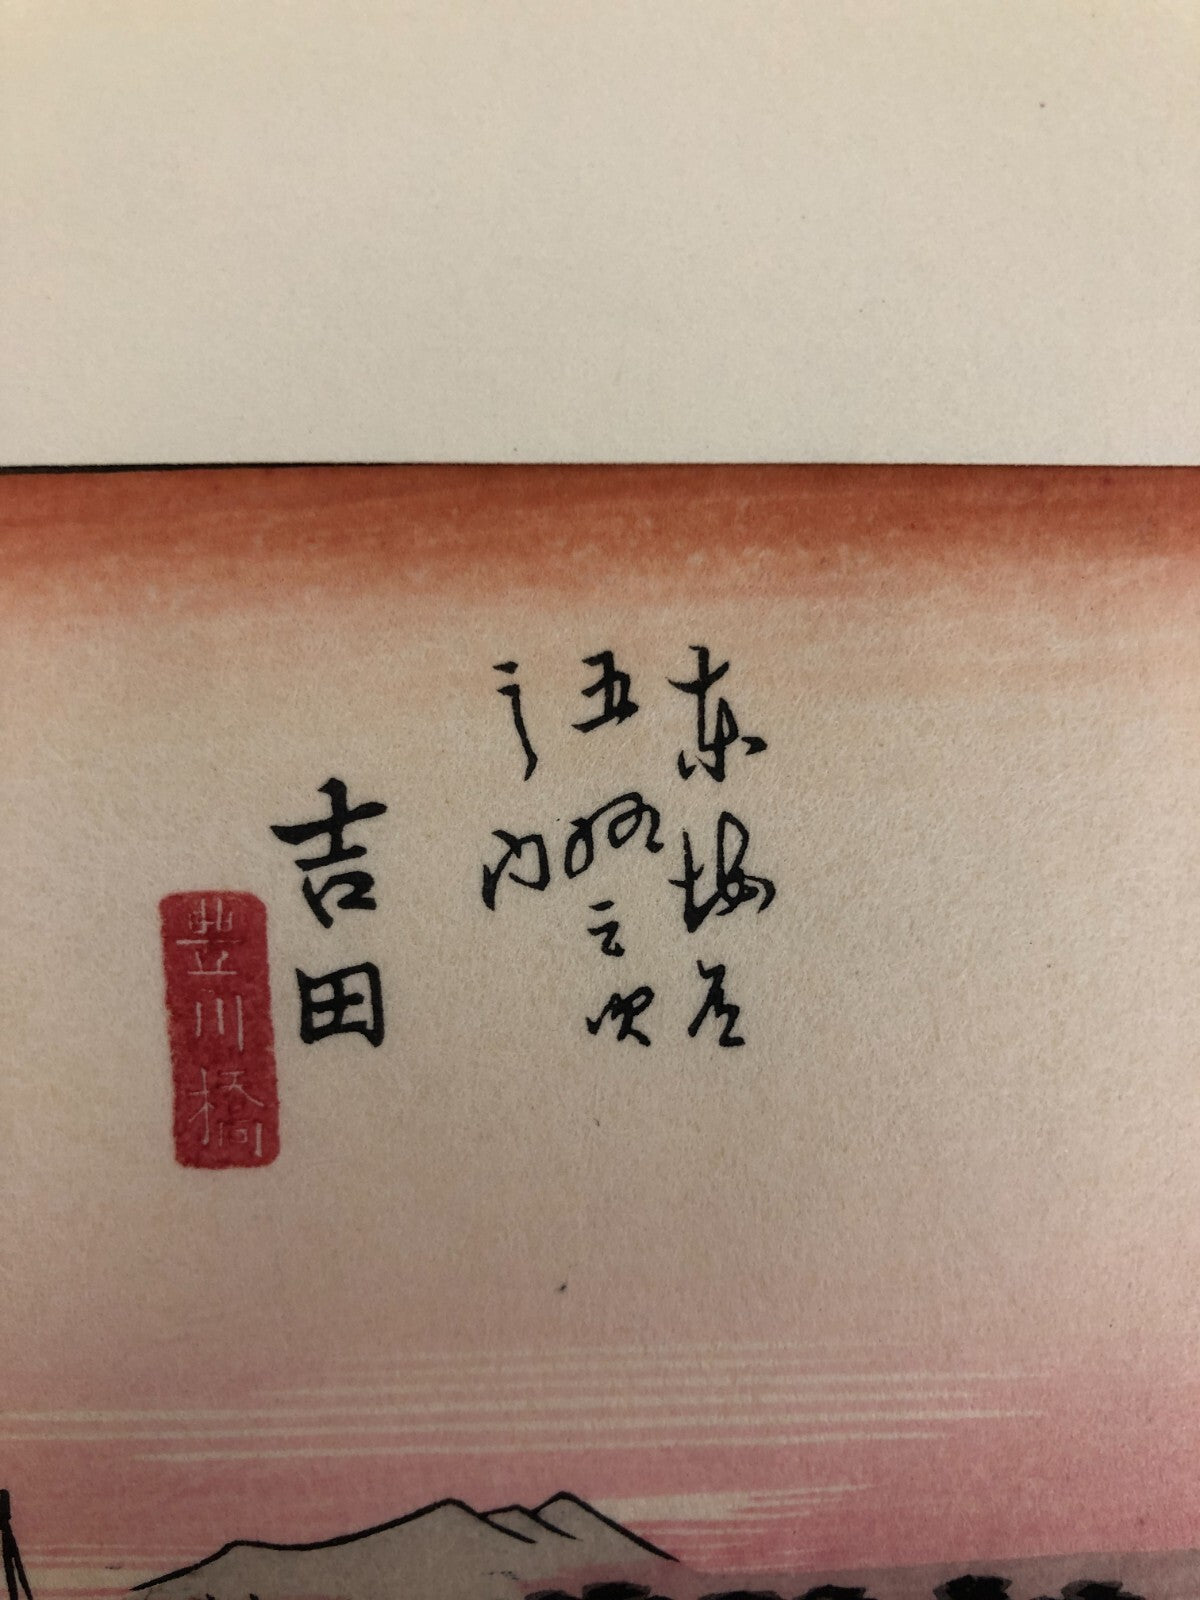 東海道
五拾三次
之内
吉田
豊川橋